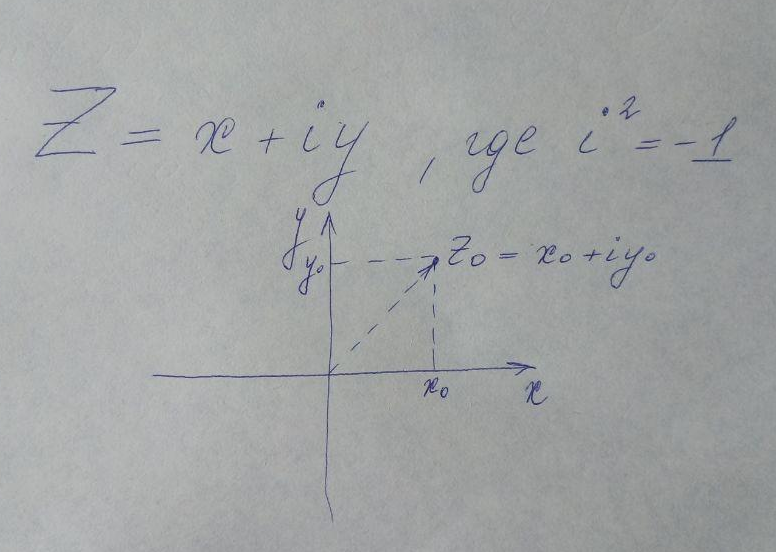 Z = x + iy , где i² = -1
y
y₀
z₀ = x₀ + iy₀
x₀
x